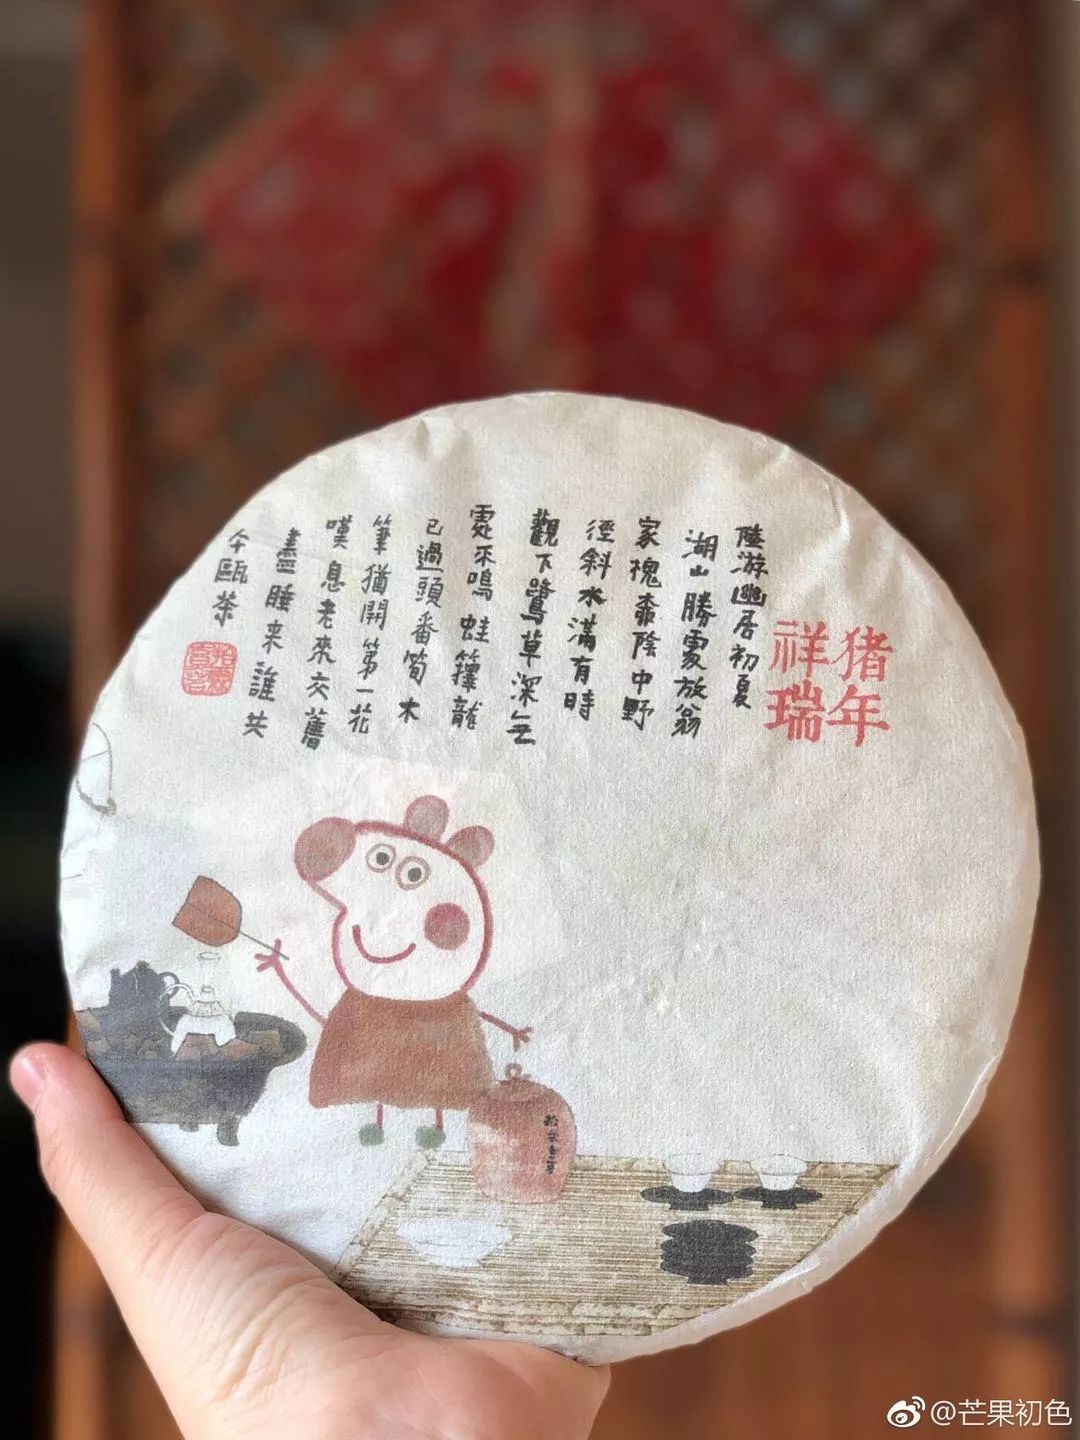 猪年
祥瑞
陸游幽居初夏
湖山勝處放翁
家槐柳陰中野
徑斜水滿有時
觀下鷺草深无
處不鳴蛙籜龍
已過頭番筍木
筆猶開第一花
嘆息老來交舊
盡睡来誰共
午甌茶
@芒果初色